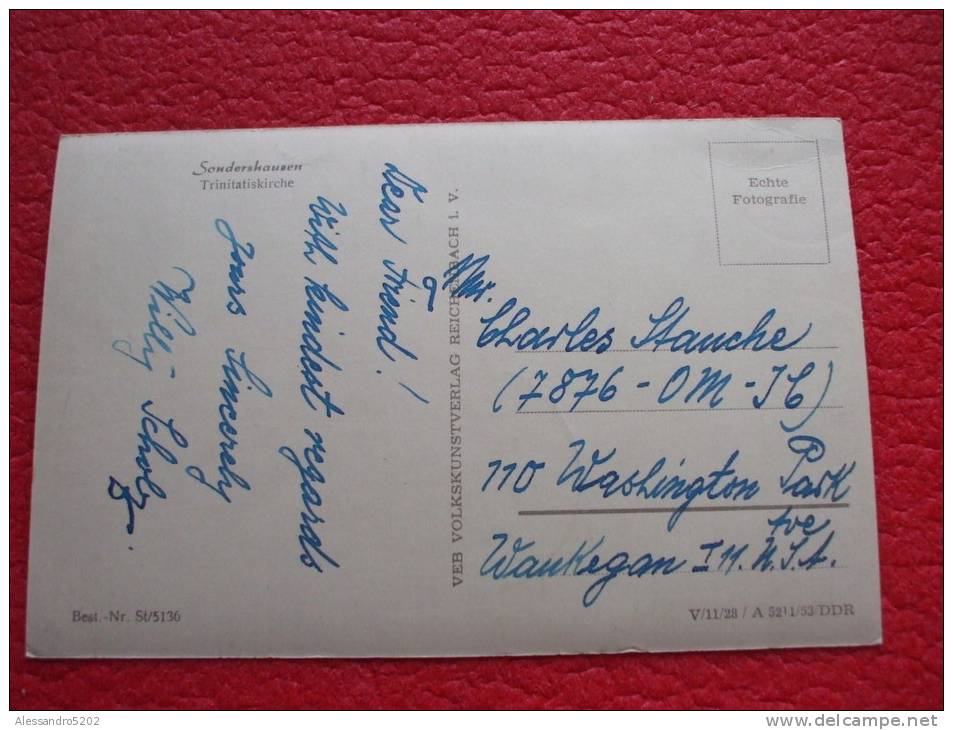 Sondershausen
Trinitatiskirche
Dear Friend!
With kindest regards
yours sincerely
Willy Scholz
VEB VOLKSKUNSTVERLAG REICHENBACH I. V.
Echte
Fotografie
Mr.
Charles Stauche
(7876-OM-JC)
110 Washington Park
Ave
Waukegan Ill. U.S.A.
Best.-Nr. St/5136
V/11/28 / A 5211/53/DDR
Alessandro5202
www.delcampe.net